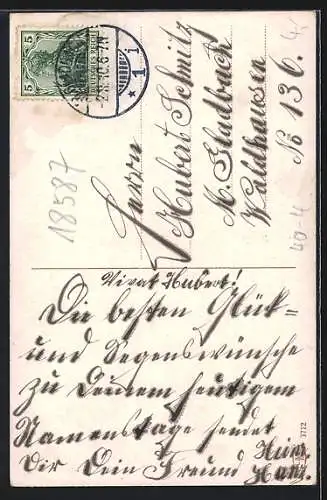 5 5
DEUTSCHES REICH
2.11.10.6-7N
* 1 i
Herrn
Hubert Schmitz
M. Gladbach
Waldhausen
No 136.
18587
40-4
Vivat Hubert!
Die besten Glück-
und Segenswünsche
zu Deinem heutigem
Namenstage sendet
Dir Dein Freund
3712